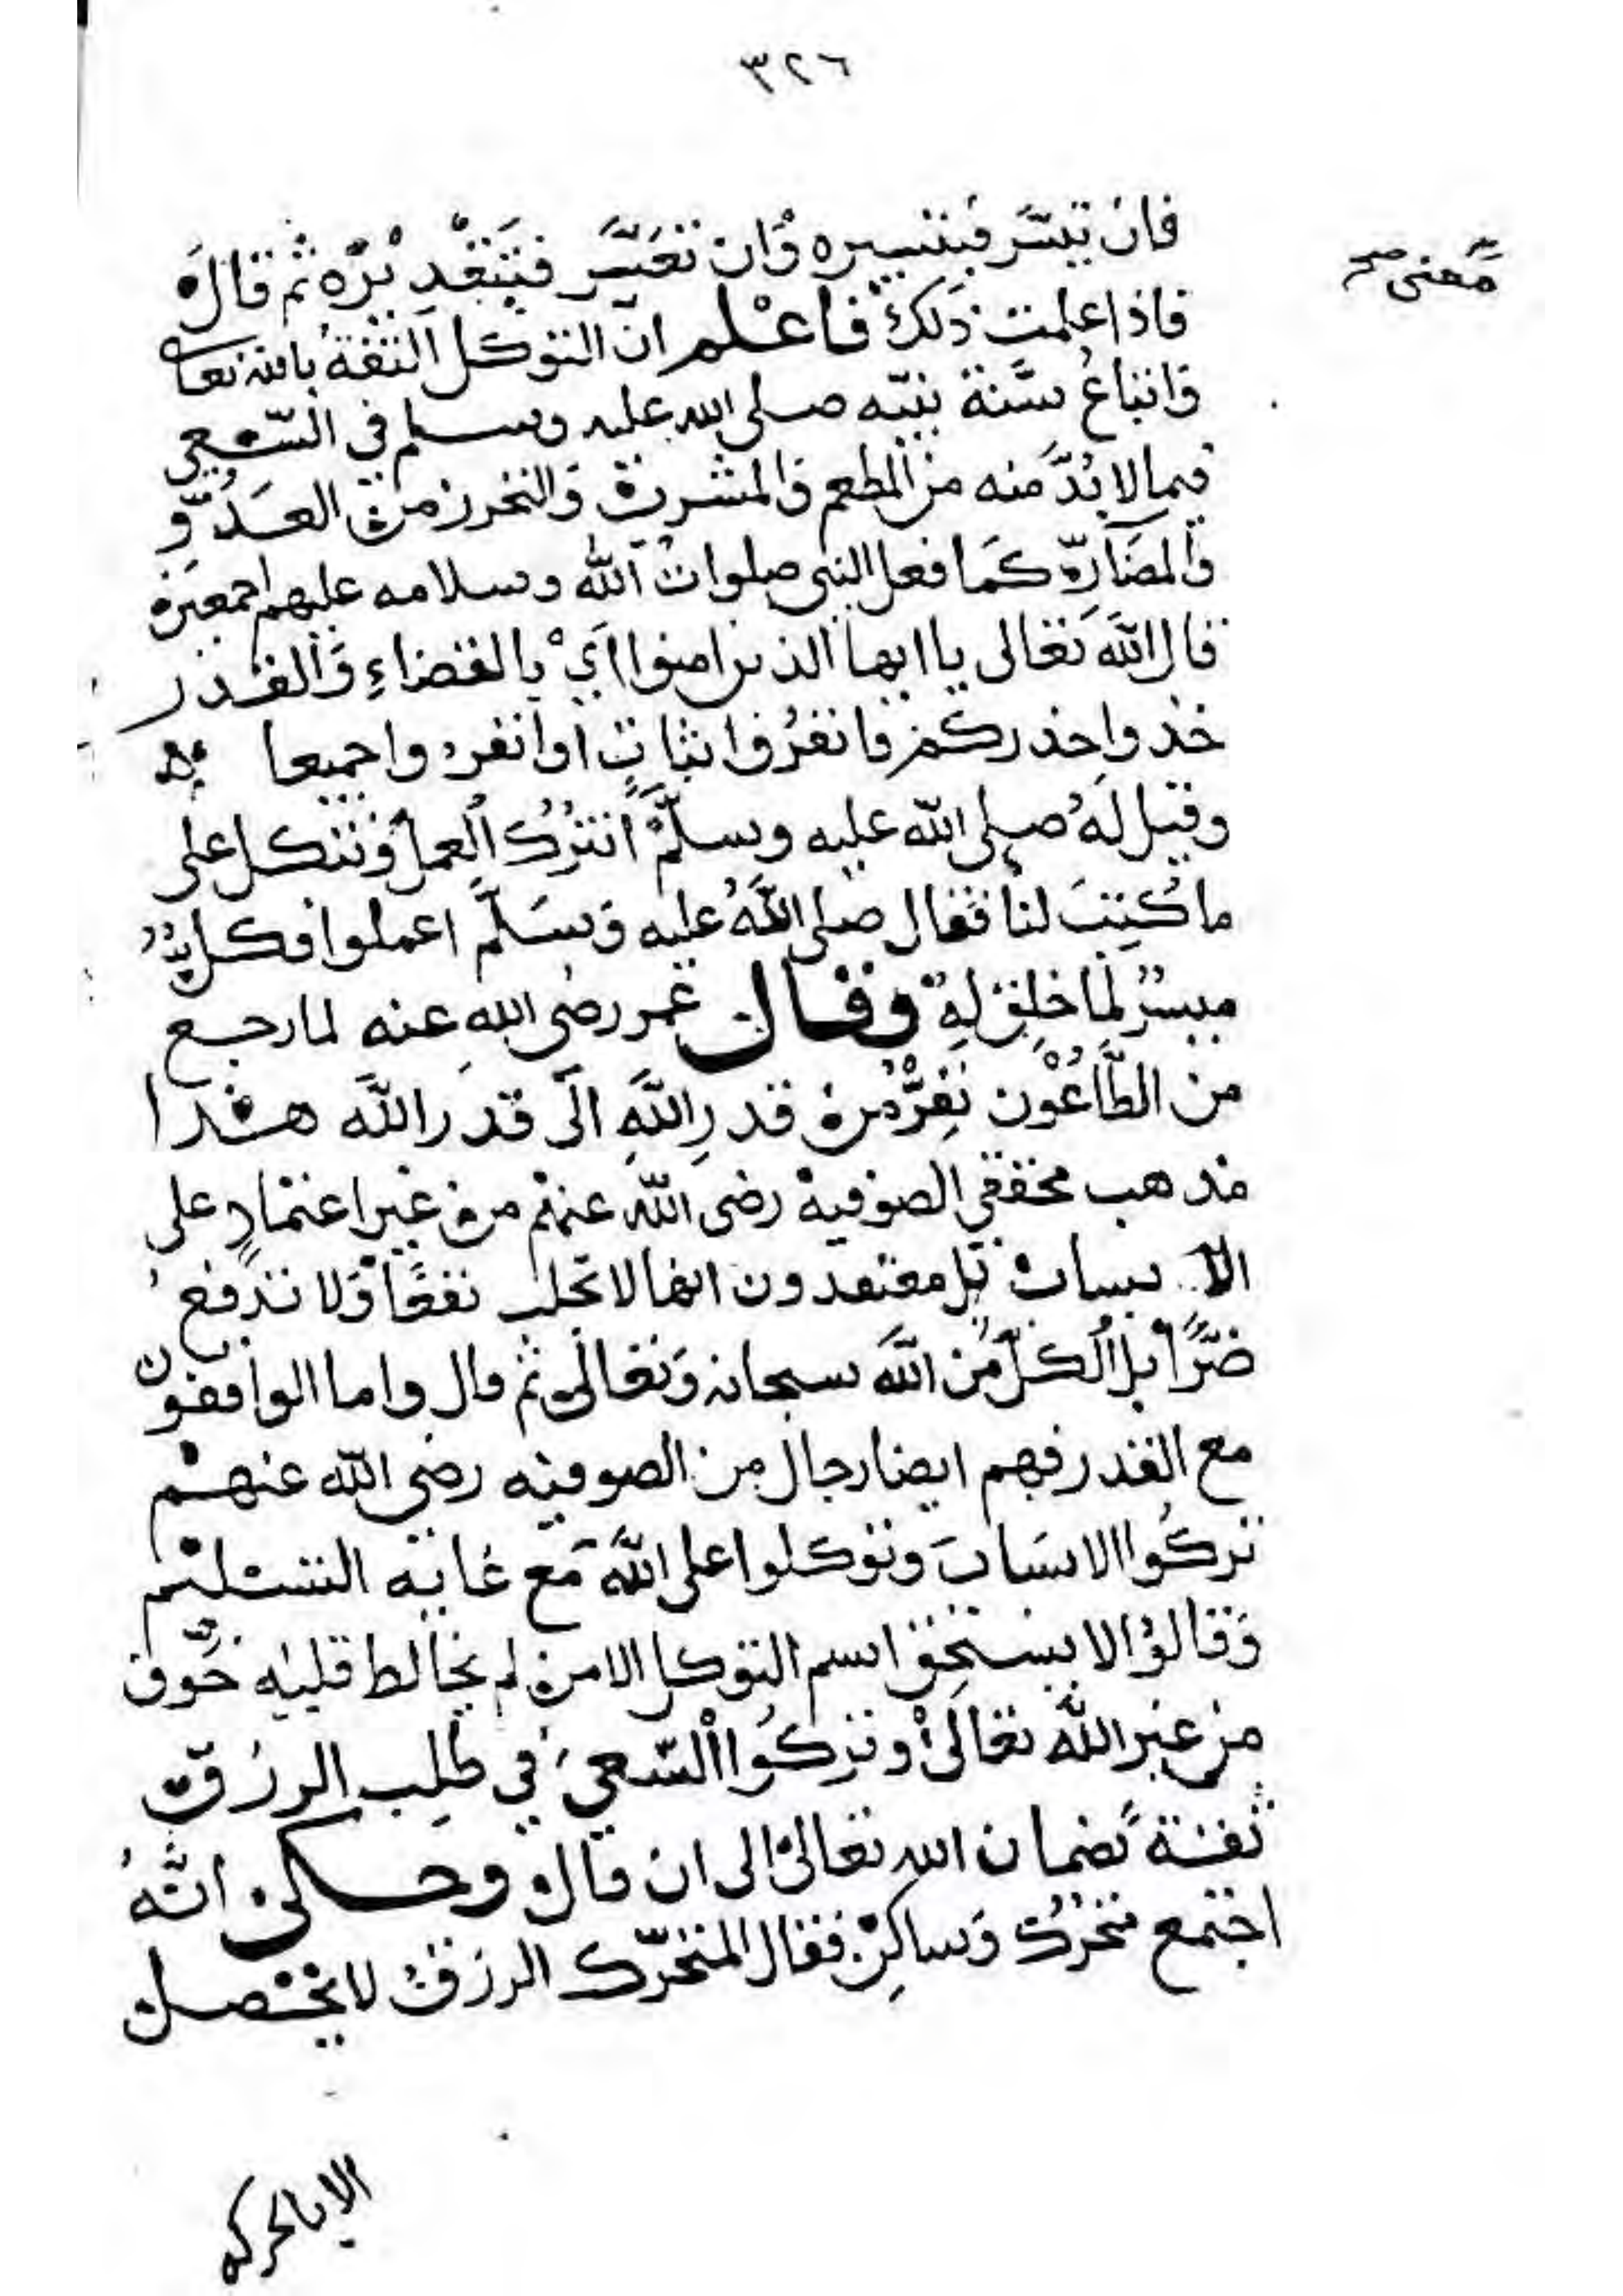 ٣٢٦
معنى صح
فان تيسر فبتيسيره وان تعسر فبتقديره ثم قال
فاذا علمت ذلك فاعلم ان التوكل الثقة بالله تعالى
واتباع سنة نبيه صلى الله عليه وسلم في السعي
فيما لا بد منه من المطعم والمشرب والتحرز من العدو
والمضارة كما فعل النبي صلوات الله وسلامه عليهم اجمعين
قال الله تعالى يا ايها الذين امنوا اي بالقضاء والقدر
خذوا حذركم فانفروا ثبات او انفروا جميعا
وقيل له صلى الله عليه وسلم انترك العمل ونتكل على
ما كتب لنا فقال صلى الله عليه وسلم اعملوا فكل
ميسر لما خلق له وقال عمر رضي الله عنه لما رجع
من الطاعون نفر من قدر الله الى قدر الله هذا
مذهب محققي الصوفية رضى الله عنهم من غير اعتماد على
الاسباب بل معتقدون انها لا تجلب نفعا ولا تدفع
ضرا بل الكل من الله سبحانه وتعالى ثم قال واما الواقفون
مع القدر فهم ايضا رجال من الصوفيه رضي الله عنهم
تركوا الاسباب وتوكلوا على الله مع غاية التسليم
وقالوا لا يستحق اسم التوكل الا من لم يخالط قلبه خوف
من غير الله تعالى وتركوا السعي في طلب الرزق
ثقة بضمان الله تعالى الى ان قال وحكى انه
اجتمع متحرك وساكن فقال المتحرك الرزق لا يحصل
الا بالحركه